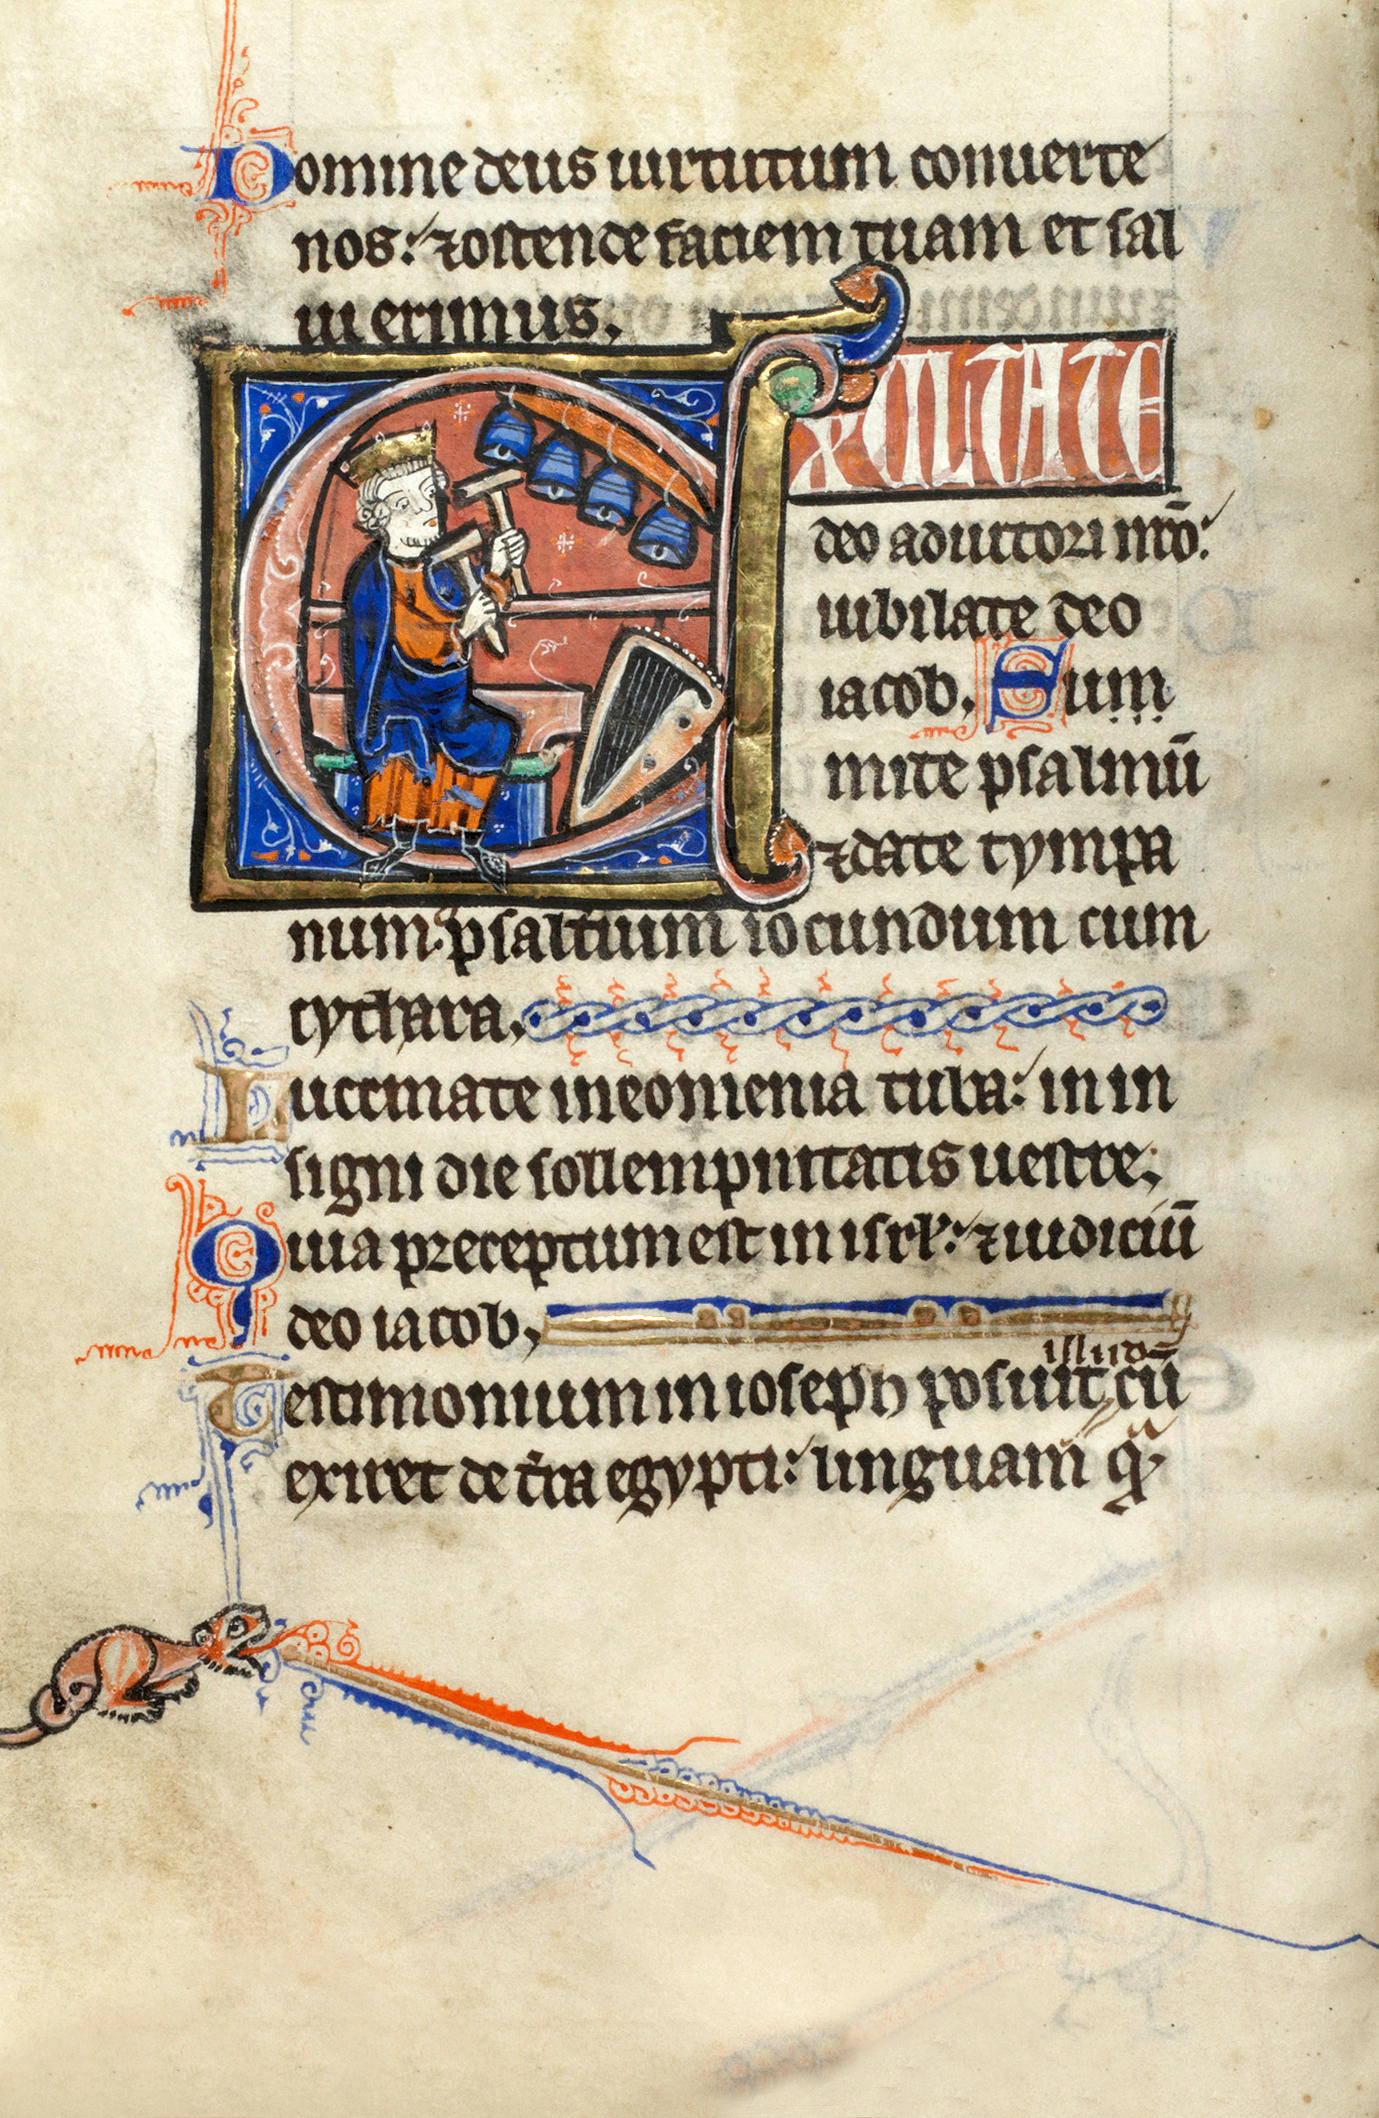 Domine deus uirtutum conuerte
nos: ⁊ ostende faciem tuam et sal
ui erimus.
EXULTATE
deo adiutori nr̄o:
iubilate deo
iacob. Sum
mite psalmū
⁊ date tympa
num: psalt'ium iocundum cum
cythara.
Buccinate in neomenia tuba: in in
signi die sollempnitatis uestre.
Quia preceptum est in isrł: ⁊ iudiciū
deo iacob.
illud
Testimonium in ioseph posuit cū
exiret de t'ra egypti: linguam q̄